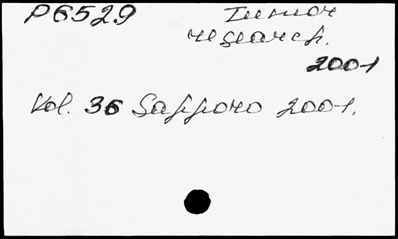 P6529 Tumor
research.
2001
Vol. 36 Sapporo 2001.